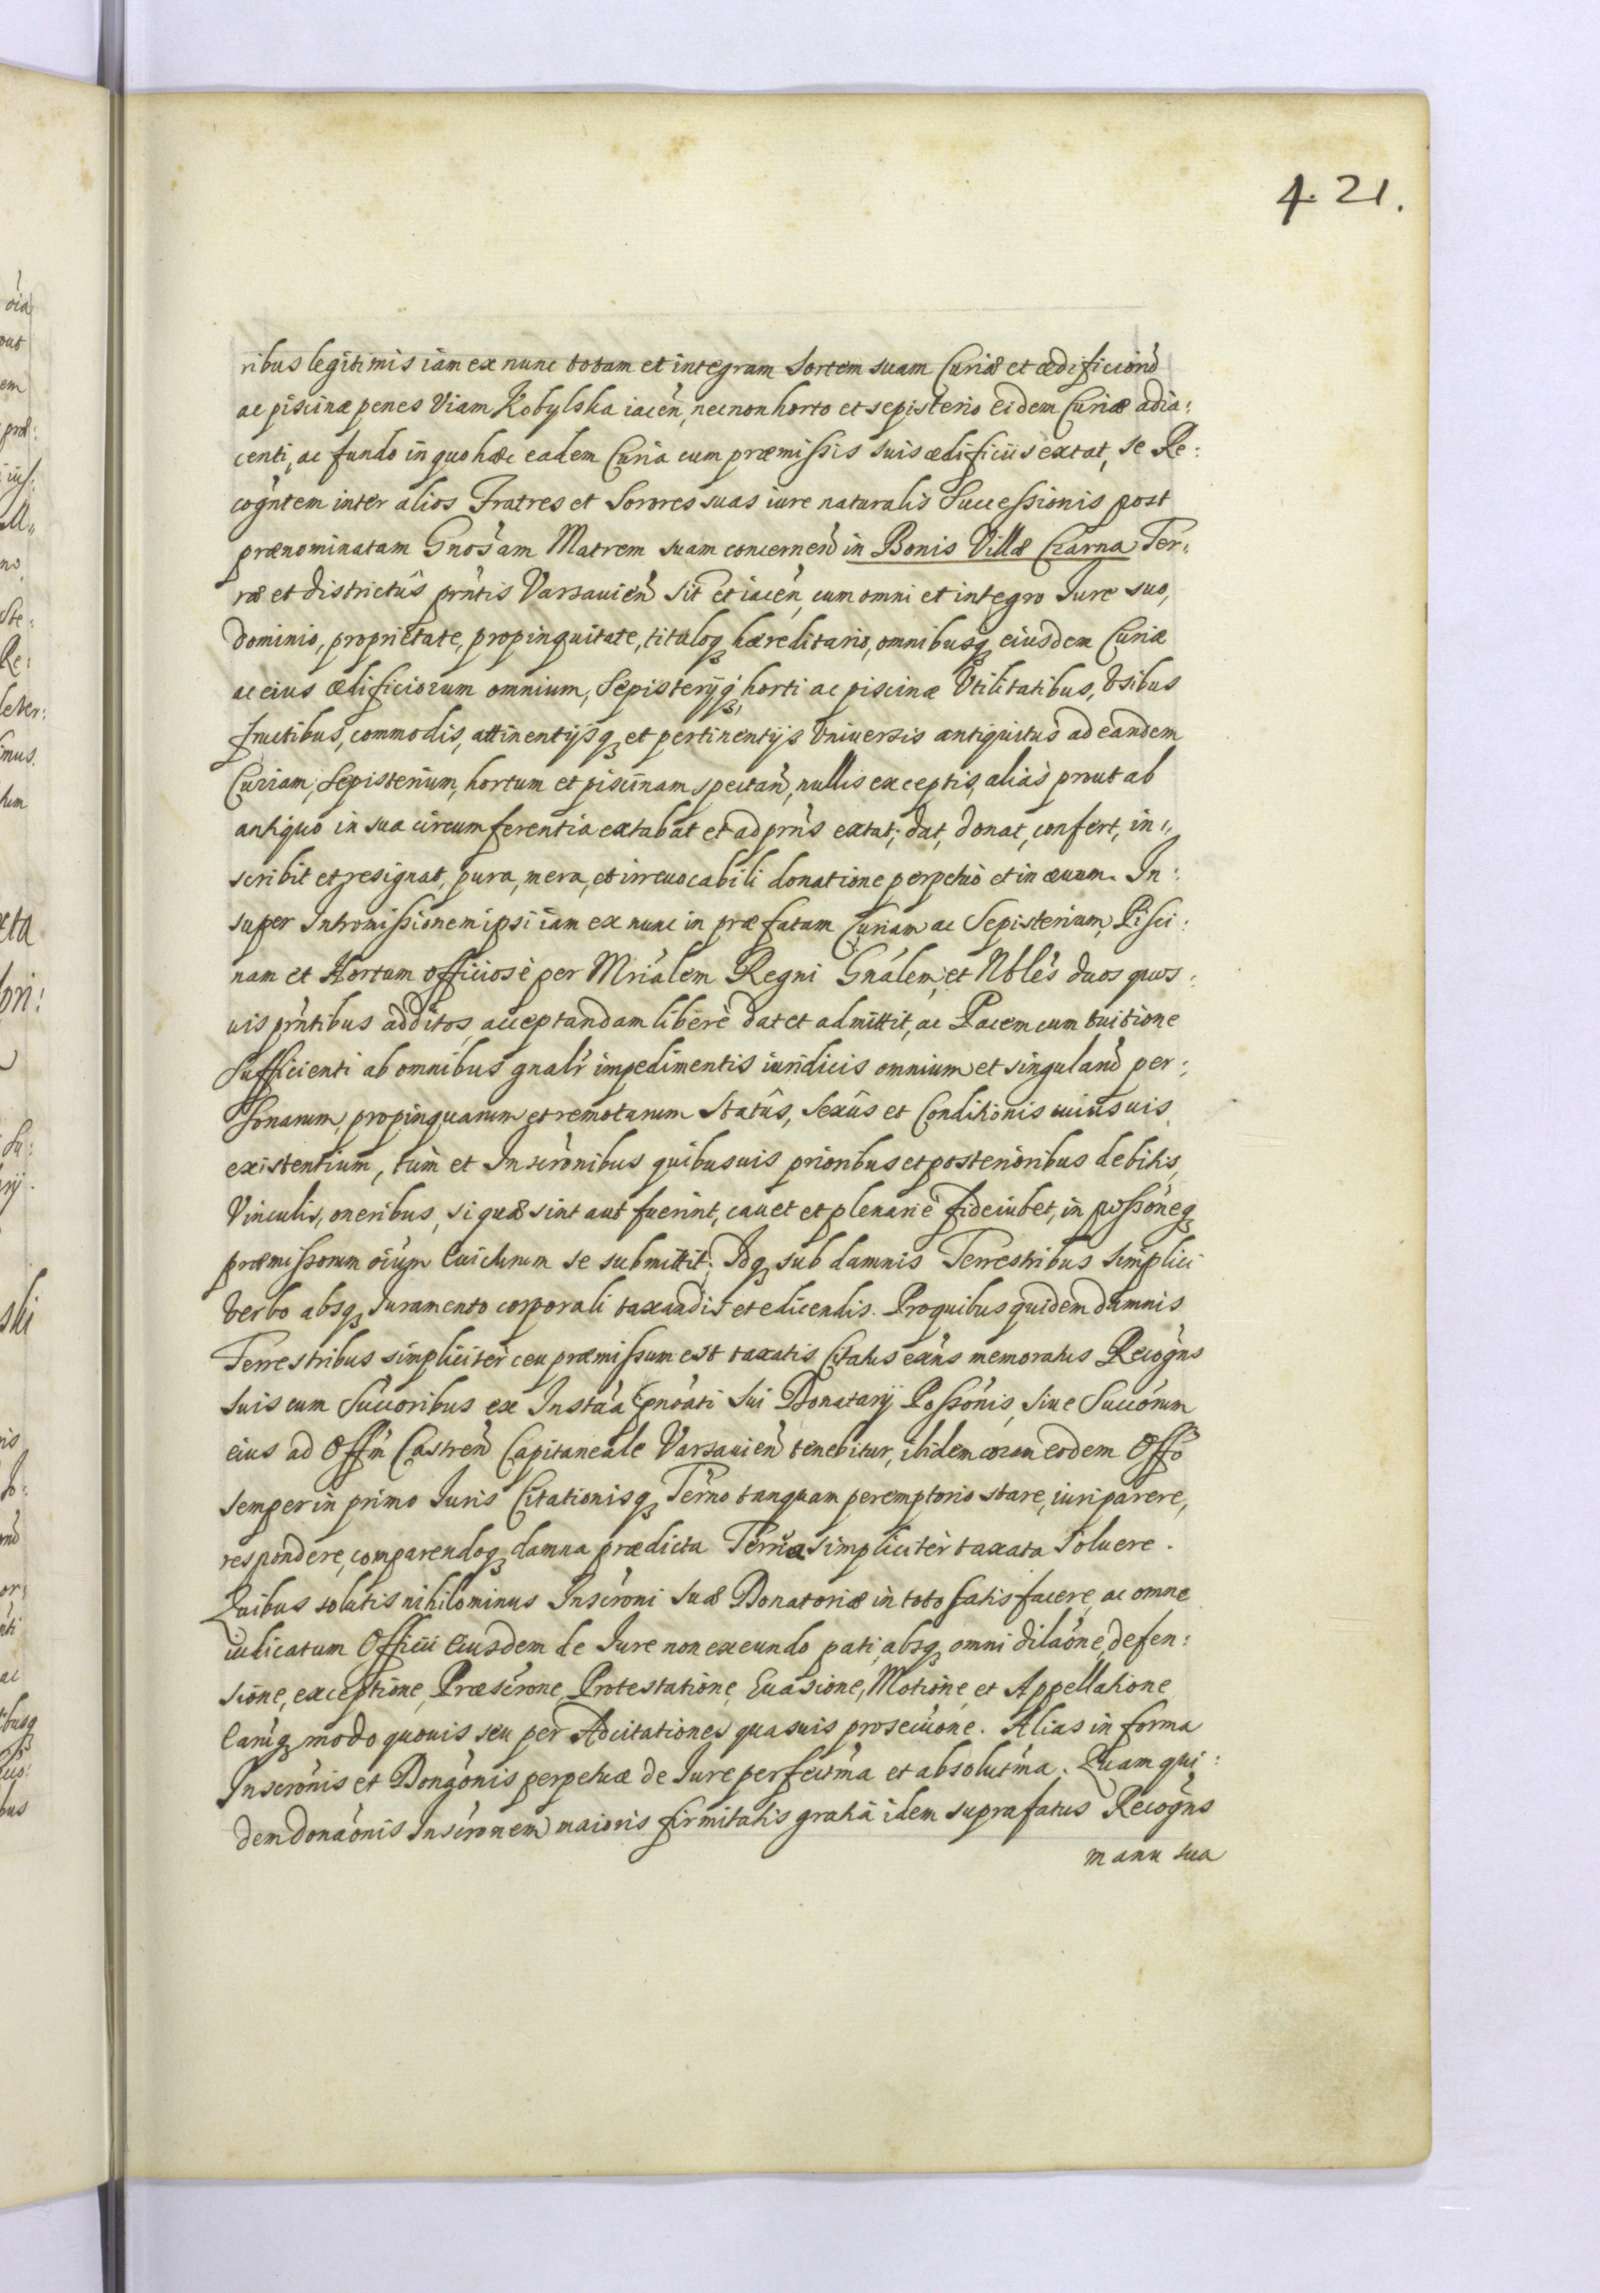 4. 21.
ribus legitimis iam ex nunc totam et integram Sortem suam Curiæ et ædificiorũ
ac piscinæ penes Viam Kobylska iacen̄, necnon horto et sepisterio eidem Curiæ adia:
centi, ac fundo in quo hæc eadem Curia cum præmissis suis ædificiis extat, se Re:
cogn̄tem inter alios Fratres et Sorores suas iure naturalis Successionis post
prænominatam Gnosam Matrem suam concernen̄ in Bonis Villæ Czarna Ter:
ræ et districtûs prn̄tis Varsauien̄ sit et iacen̄, cum omni et integro Iure suo,
dominio, proprietate, propinquitate, tituloq₃ hæreditario, omnibusq₃ eiusdem Curiæ
ac eius ædificiorum omnium, Sepisterijq₃, horti ac piscinæ Vtilitatibus, Vsibus
fructibus, commodis, attinentijsq₃ et pertinentijs Vniuersis antiquitus ad eandem
Curiam, Sepisterium, hortum et piscinam spectan̄, nullis exceptis, aliàs prout ab
antiquo in sua circumferentia extabat et ad prn̄s extat; dat, donat, confert, in:
scribit et resignat, pura, mera, et irreuocabili donatione perpetuò et in æuum. In:
super Intromissionem ipsi iam ex nunc in præfatam Curiam ac Sepisterium, Pisci:
nam et Hortum officiosè per Mrīalem Regni Gnālem, et Nblēs duos quos:
uis prn̄tibus additos, acceptandam liberè dat et admittit, ac Pacem cum tuitione
Sufficienti ab omnibus gnālr̄ impedimentis iuridicis omnium et singularū per:
sonarum, propinquarum et remotarum Statûs, Sexûs et Conditionis cuiusuis
existentium, tùm et Inscrōnibus quibusuis prioribus et posterioribus debitis,
Vinculis, oneribus, si quæ sint aut fuerint, cauet et plenariè fideiubet, in possōneq₃
præmissorum oīum Euictorum se submittit. Idq₃ sub damnis Terrestribus simplici
Verbo absq₃ Iuramento corporali taxandis et edicendis. Pro quibus quidem damnis
Terrestribus simpliciter ceu præmissum est taxatis Citatus exn̄s memoratus Recogn̄s
suis cum Succōribus ex Instāā pnōāti Sui Donatarij Possōnis, siue Succōrum
eius ad Offm̄ Castren̄ Capitaneale Varsauien̄ tenebitur, ibidem coram eodem Offō
semper in primo Iuris Citationisq₃ Termo tanquam peremptorio stare, iuri parere,
respondere, comparendoq₃ damna prædicta Terria simpliciter taxata soluere.
Quibus solutis nihilominus Inscrōni suæ Donatoriæ in toto satisfacere, ac omne
iudicatum Officii eiusdem de Iure non exeundo pati, absq₃ omni dilāone, defen:
sione, exceptione, Præscrōne, Protestatione, Euasione, Motione, et Appellatione
earūq₃ modo quouis seu per Adcitationes quasuis prosecuōne. Alias in forma
Inscrōnis et Donāonis perpetuæ de Iure perfectm̄a et absolutm̄a. Quam qui:
dem donāonis Inscrōnem maioris firmitatis gratiâ idem suprafatus Recogn̄s
manu sua